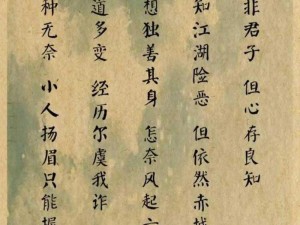 非君子 但心存良知
知江湖险恶 但依然赤
想独善其身 怎奈风起
道多变 经历尔虞我诈
种无奈 小人扬眉只能